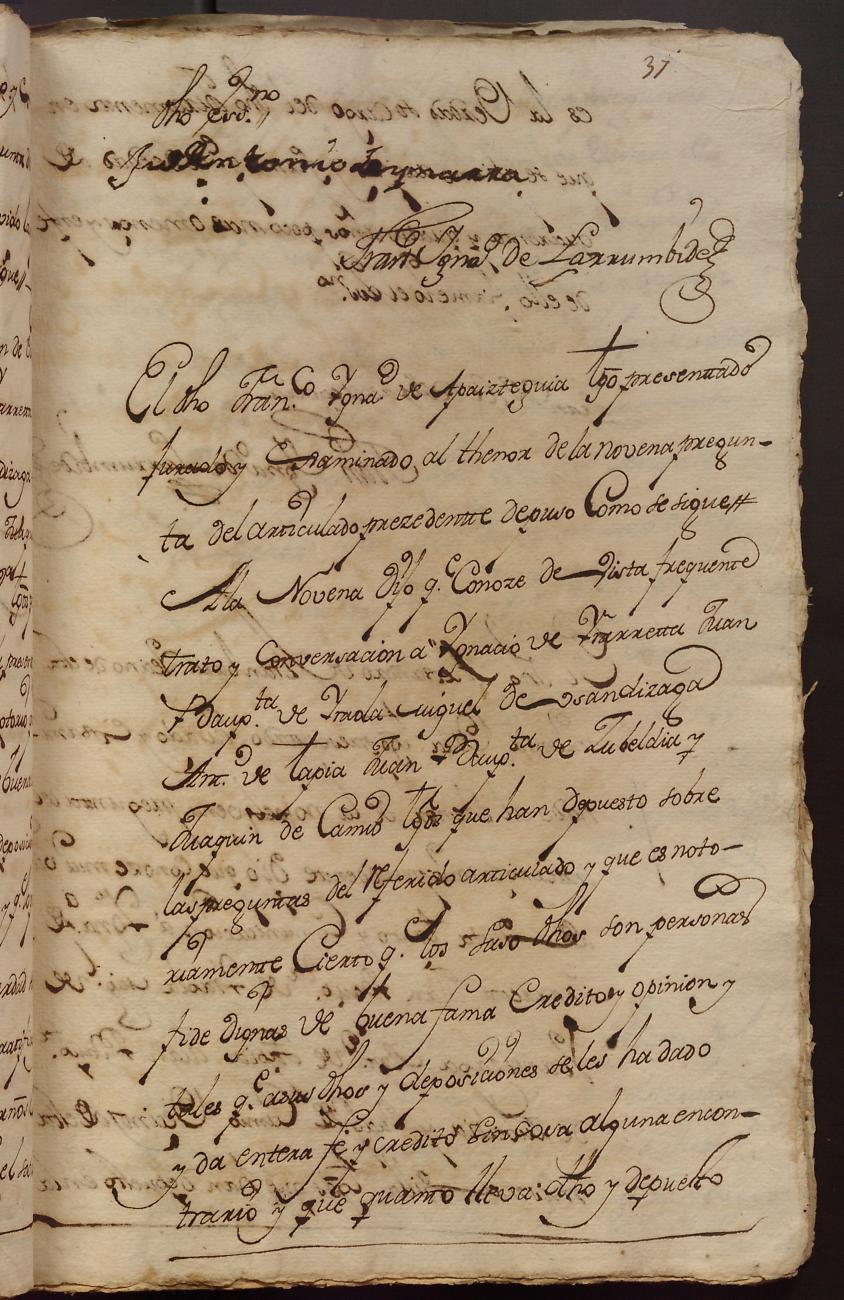 37
dho ess.no
Juº Antonio
Fran.co Ygnº de Larrumbide
El dho Fran.co Ygnaº de Apaizteguia tgº presentado
jurado y Examinado al thenor de la novena pregun-
ta del articulado prezedentte depuso Como se sigue
A la Novena Dijo q.e Conoze de Vista frequente
trato y Conversacion a Ygnacio de Yrarreta Juan
Baup.ta de Yraola Miguel de Osandizaga
Antº de tapia Juan Baup.ta de Zubeldia y
Juaquin de Camio tgos que han depuesto sobre
las preguntas del referido articulado y que es noto-
riamente Cierto q.e los suso dhos son personas
fide dignas de buena fama Credito y opinion y
tales q.e a sus dhos y deposiciones se les ha dado
y da entera fe y credito sin cosa alguna encon-
trario y que quanto lleva dho y depuesto